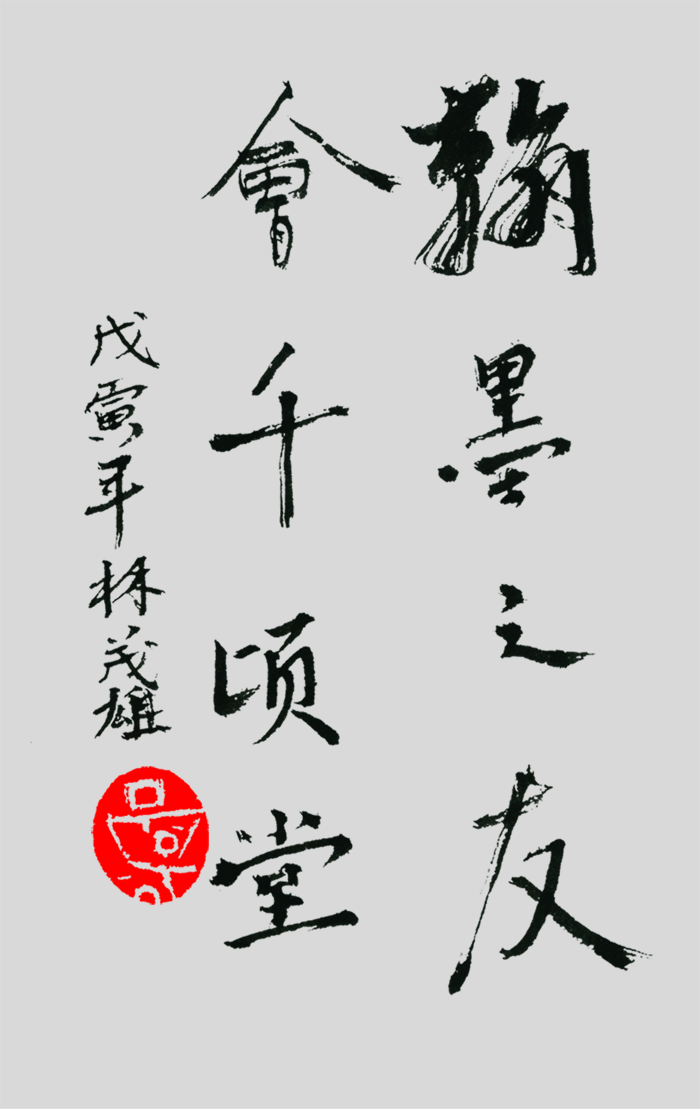 翰墨之友
會千頃堂
戊寅年林茂雄